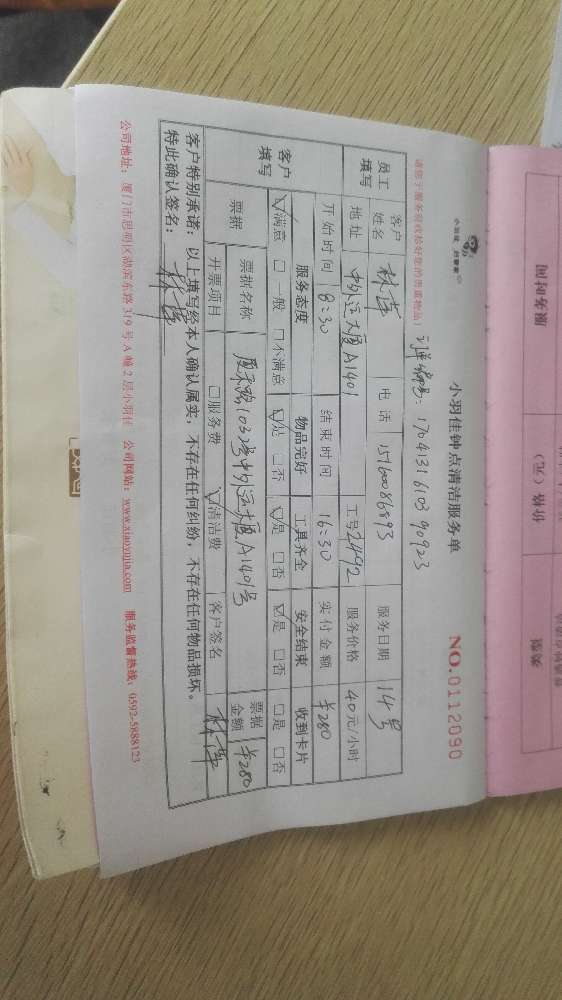 小羽佳 好管家
小羽佳钟点清洁服务单
NO.0112090
请您于服务前收拾好您的贵重物品!
订单编号:1704131610390923
员工填写 客户姓名 电话 15160086893 服务日期 14号
地址 中外运大厦A1401 工号 2492 服务价格 40元/小时
开始时间 8:30 结束时间 16:30 实付金额 ¥280
客户填写 服务态度 物品完好 工具齐全 安全结束 收到卡片
☑满意 □一般 □不满意 ☑是 □否 ☑是 □否 ☑是 □否 □是 □否
票据 票据名称 1032号中外运大厦A1401号 票据金额 ¥280
开票项目 □服务费 ☑清洁费 客户签名
客户特别承诺:以上填写经本人确认属实,不存在任何纠纷,不存在任何物品损坏。
特此确认签名:
公司地址:厦门市思明区湖滨东路319号A幢2层小羽佳 公司网站:www.xiaoyujia.com 服务监督热线:0592-5888123
服务时间
价格(元)